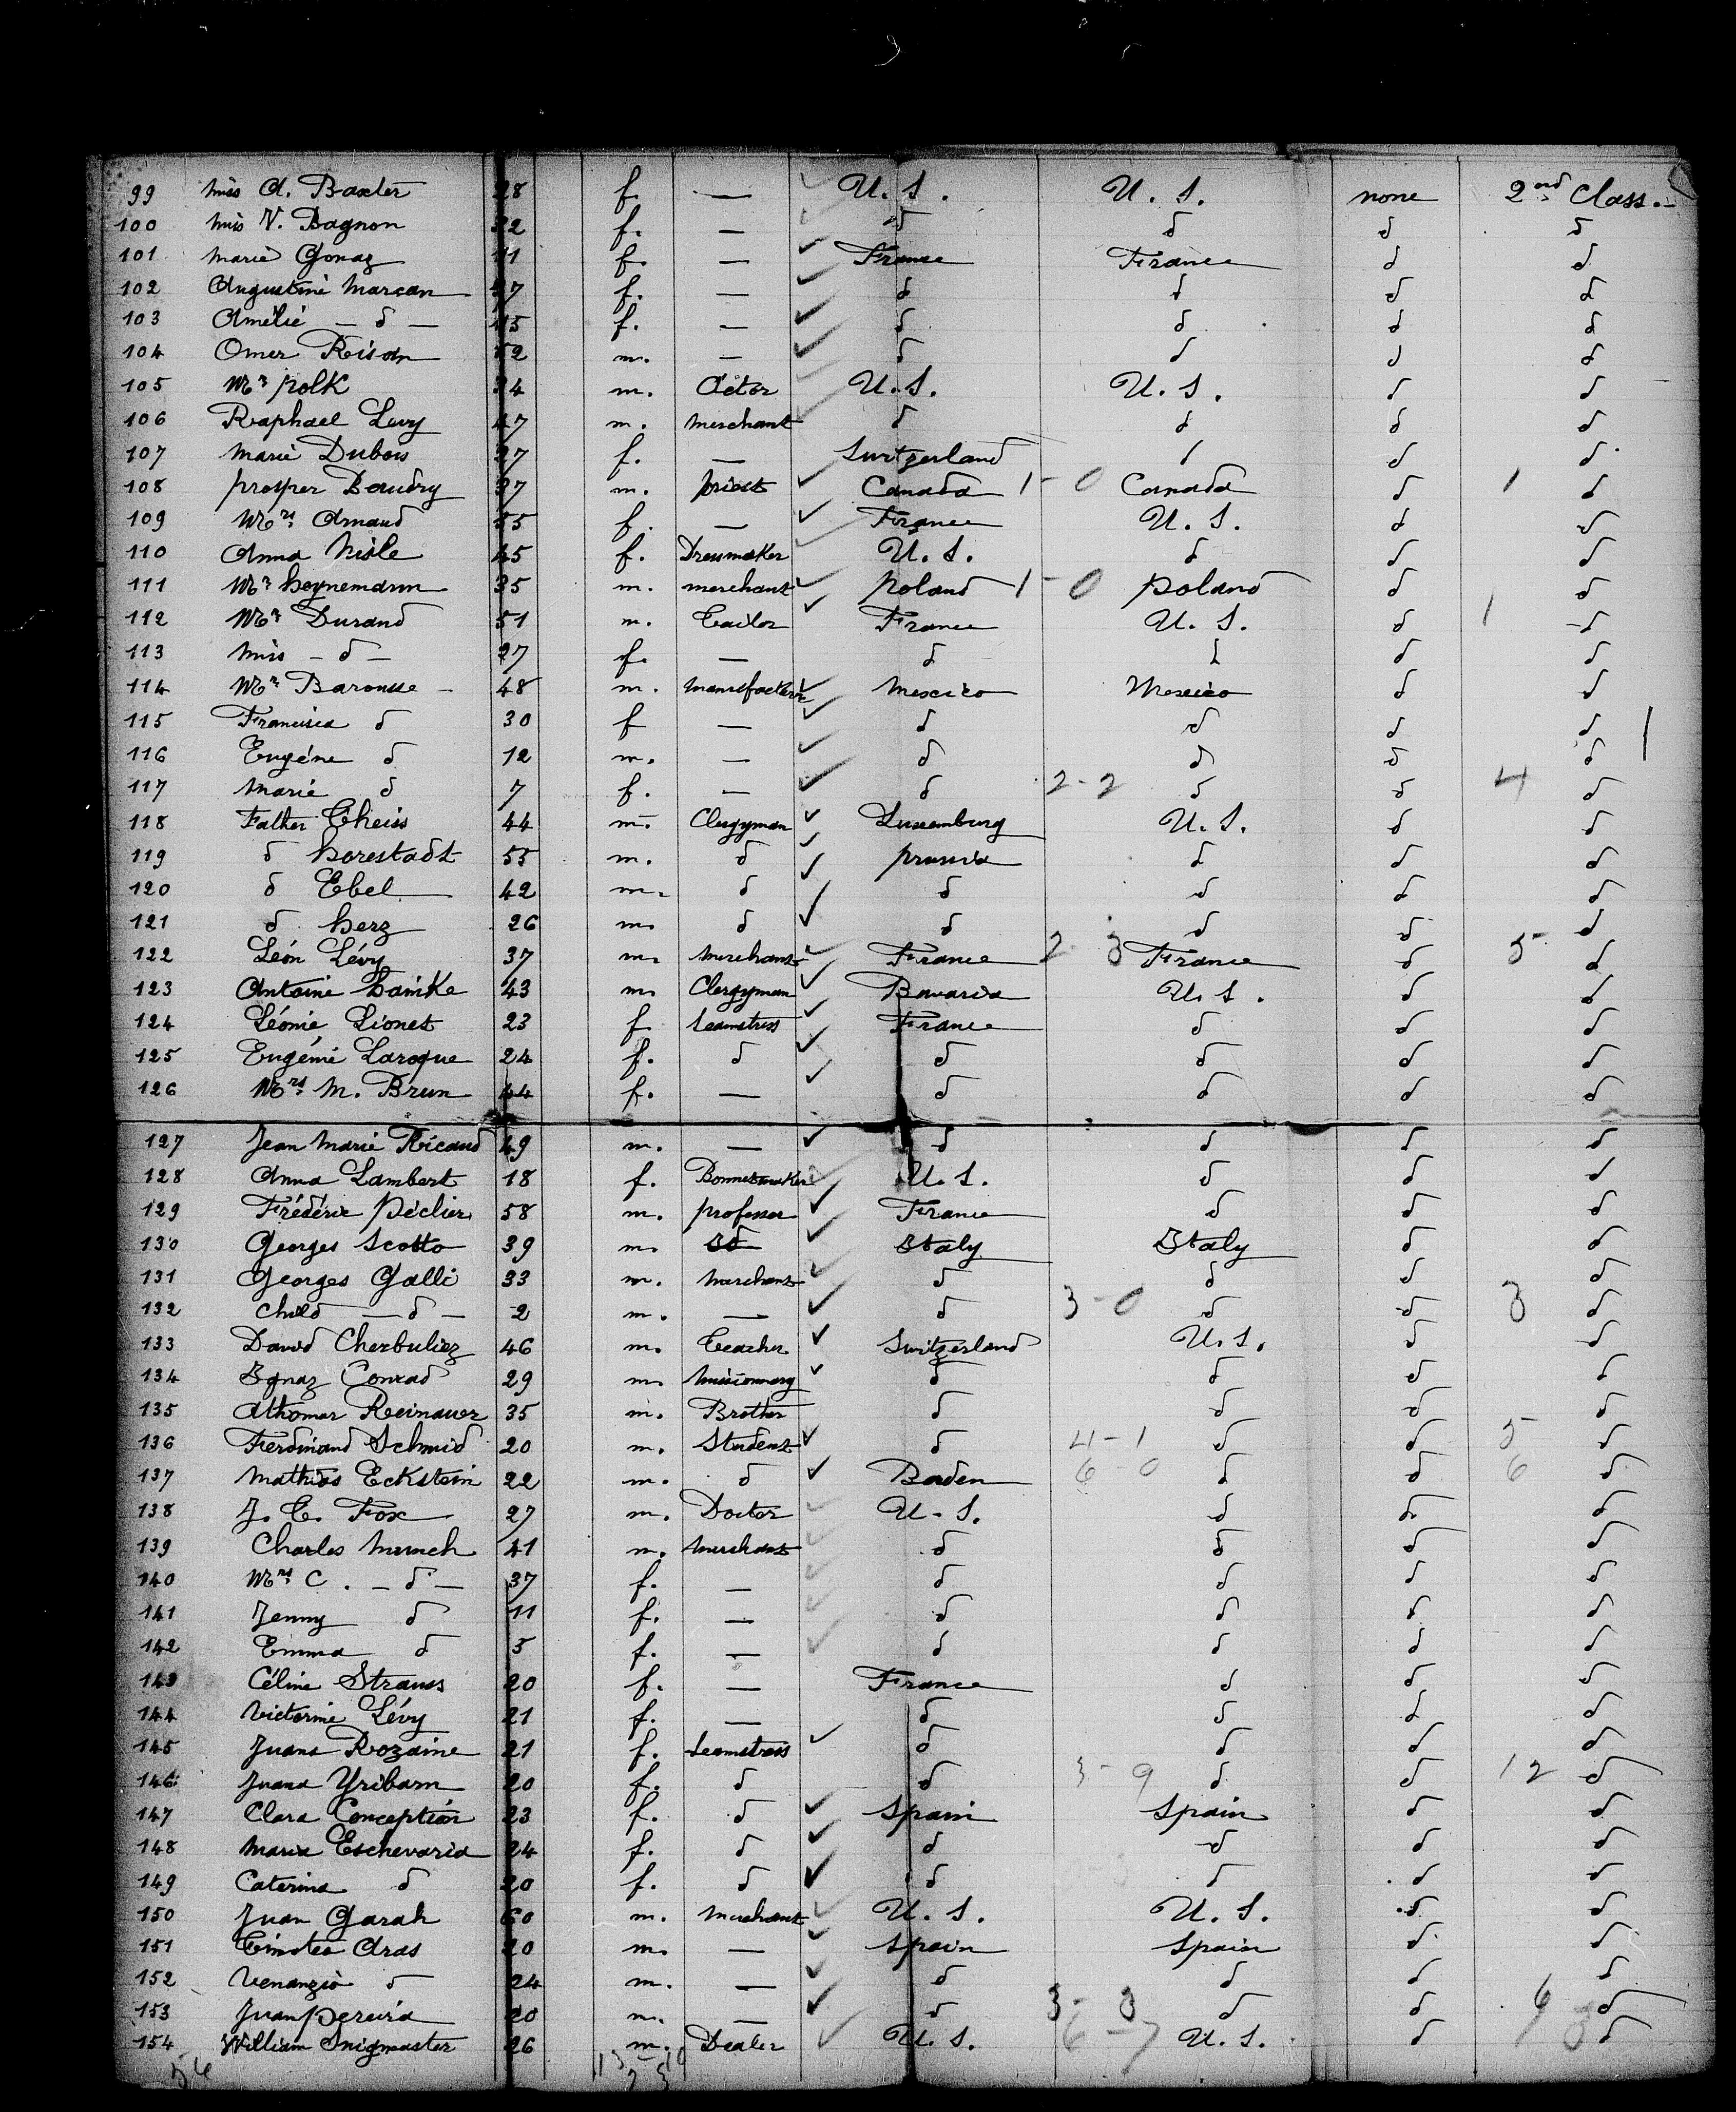 99 Miss A. Baxter 28 f. — U. S. U. S. none 2nd Class.
100 Miss V. Bagnon 32 f. — d d d d
101 Marie Gonaz 11 f. — France France d d
102 Augustine Marcan 37 f. — d d d d
103 Amélie — d — 15 f. — d d d d
104 Omer Reison 52 m. — d d d d
105 Mr Polk 34 m. Actor U. S. U. S. d d
106 Raphael Levy 47 m. merchant d d d d
107 Marie Dubois 27 f. — Switzerland d d d
108 Prosper Baudry 37 m. priest Canada 1 - 0 Canada d 1 d
109 Mrs Arnaud 55 f. — France U. S. d d
110 Anna Nisle 45 f. Dressmaker U. S. d d d
111 Mr Heynemann 35 m. merchant Poland 1 - 0 Poland d d
112 Mr Durand 51 m. Tailor France U. S. d 1 d
113 Miss — d — 27 f. — d d d d
114 Mr Barousse 48 m. Mexico Mexico d d
115 Francisca d 30 f — d d d d
116 Eugéne d 12 m. — d d d d
117 Marie d 7 f. — d 2 - 2 d d 4 d
118 Father Theiss 44 m. Clergyman Luxemburg U. S. d d
119 d Horestadt 55 m. d Prussia d d d
120 d Ebel 42 m. d d d d d
121 d Herz 26 m. d d d d d
122 Léon Lévy 37 m. Merchant France 2 - 3 France d 5 d
123 Antoine Lamke 43 m. Clergyman Bavaria U. S. d d
124 Léonie Lionet 23 f Seamstress France d d d
125 Eugénie Laroque 24 f. d d d d d
126 Mrs M. Brun 44 f. — d d d d
127 Jean Marie Ricaud 49 m. — d d d d
128 Anna Lambert 18 f. Bonnetmaker U. S. d d d
129 Fréderic Péclier 58 m. professor France d d d
130 Georges Scotto 39 m. Italy Italy d d
131 Georges Galli 33 m. Merchant d d d d
132 Child — d — 2 m. — d 3 - 0 d d 3 d
133 David Cherbuliez 46 m. Teacher Switzerland U. S. d d
134 Ignaz Conrad 29 m. Missionnary d d d d
135 Athomar Reinauer 35 m. Brother d d d d
136 Ferdinand Schmid 20 m. Student d 4 - 1 d d 5 d
137 Mathias Eckstein 22 m. d Baden 6 - 0 d d 6 d
138 J. C. Fox 27 m. Doctor U. S. d d d
139 Charles Munch 41 m. Merchant d d d d
140 Mrs C. — d — 37 f. — d d d d
141 Jenny d 11 f. — d d d d
142 Emma d 5 f. — d d d d
143 Céline Strauss 20 f. — France d d d
144 Victorine Lévy 21 f. — d d d d
145 Juana Rozaine 21 f. Seamstress d d d d
146 Juana Yribarn 20 f. d d 3 - 9 d d 12 d
147 Clara Conceptión 23 f. d Spain Spain d d
148 Maria Eschevaria 24 f. d d d d d
149 Caterina d 20 f. d d d d d
150 Juan Garah 60 m. Merchant U. S. U. S. d d
151 Timoteo Aras 20 m. — Spain Spain d d
152 Venanzio d 24 m. — d d d d
153 Juan Pereira 20 m. — d 3 - 3 d d 6 d
154 William Snigmaster 26 m. Dealer U. S. 6 - 7 U. S. d d